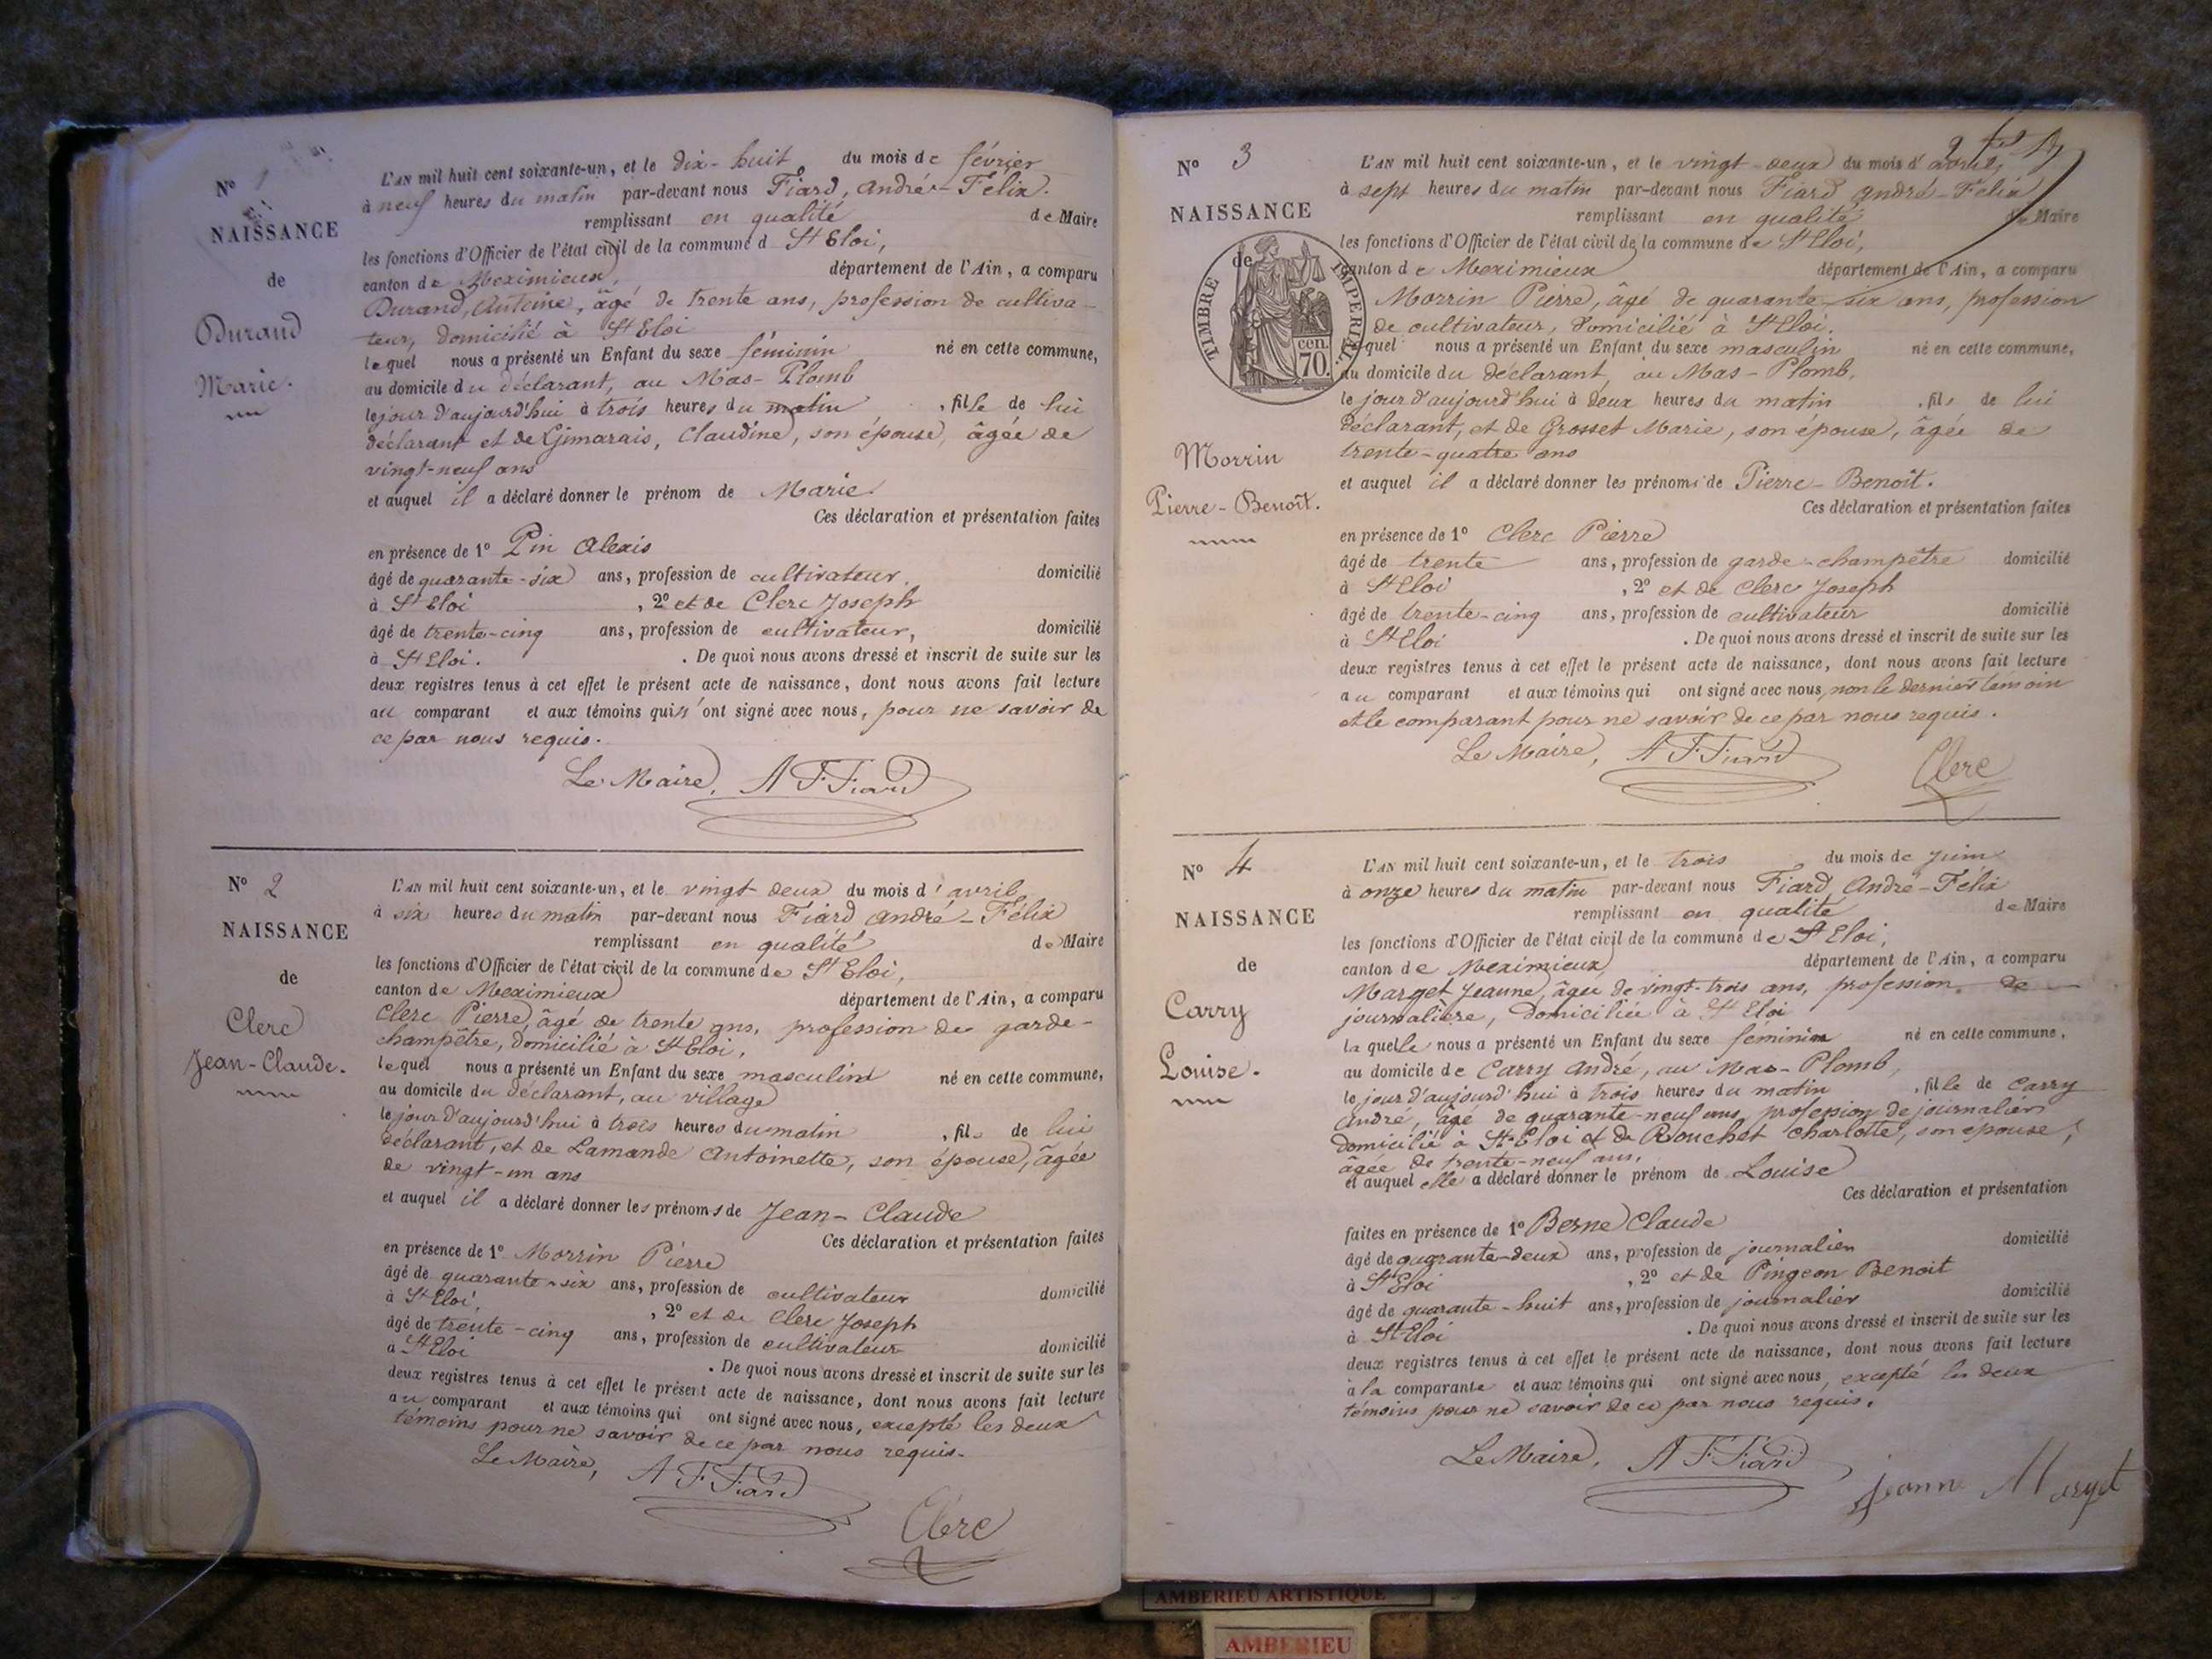 Nº 1
NAISSANCE
de
Durand
Marie.
L'AN mil huit cent soixante-un, et le dix-huit du mois de février
à neuf heures du matin par-devant nous Fiard, André-Félix.
remplissant en qualité de Maire
les fonctions d'Officier de l'état civil de la commune d St Eloi,
canton de Meximieux, département de l'Ain, a comparu
Durand, Antoine, âgé de trente ans, profession de cultiva-
teur, domicilié à St Eloi
lequel nous a présenté un Enfant du sexe féminin né en cette commune,
au domicile du déclarant, au Mas-Plomb
le jour d'aujourd'hui à trois heures du matin, fille de lui
déclarant et de Claudine, son épouse, âgée de
vingt-neuf ans
et auquel il a déclaré donner le prénom de Marie.
Ces déclaration et présentation faites
en présence de 1º Pin Alexis
âgé de quarante-six ans, profession de cultivateur, domicilié
à St Eloi, 2º et de Clerc Joseph
âgé de trente-cinq ans, profession de cultivateur, domicilié
à St Eloi. . De quoi nous avons dressé et inscrit de suite sur les
deux registres tenus à cet effet le présent acte de naissance, dont nous avons fait lecture
au comparant et aux témoins qui n'ont signé avec nous, pour ne savoir de
ce par nous requis.
Le Maire, A F Fiard
Nº 2
NAISSANCE
de
Clerc
Jean-Claude.
L'AN mil huit cent soixante-un, et le vingt deux du mois d'avril
à six heures du matin par-devant nous Fiard André-Félix
remplissant en qualité de Maire
les fonctions d'Officier de l'état civil de la commune de St Eloi,
canton de Meximieux département de l'Ain, a comparu
Clerc Pierre, âgé de trente ans, profession de garde-
champêtre, domicilié à St Eloi,
lequel nous a présenté un Enfant du sexe masculin né en cette commune,
au domicile du déclarant, au village
le jour d'aujourd'hui à trois heures du matin, fils de lui
déclarant, et de Lamande Antoinette, son épouse, âgée
de vingt-un ans
et auquel il a déclaré donner les prénoms de Jean-Claude
Ces déclaration et présentation faites
en présence de 1º Morrin Pierre
âgé de quarante-six ans, profession de cultivateur domicilié
à St Eloi, 2º et de Clerc Joseph
âgé de trente-cinq ans, profession de cultivateur domicilié
à St Eloi . De quoi nous avons dressé et inscrit de suite sur les
deux registres tenus à cet effet le présent acte de naissance, dont nous avons fait lecture
au comparant et aux témoins qui ont signé avec nous, excepté les deux
témoins pour ne savoir de ce par nous requis.
Le Maire, A F Fiard
Clerc
Nº 3
NAISSANCE
de
TIMBRE IMPERIAL
70 cen.
Morrin
Pierre-Benoît.
L'AN mil huit cent soixante-un, et le vingt-deux du mois d'avril,
à sept heures du matin par-devant nous Fiard André-Félix
remplissant en qualité de Maire
les fonctions d'Officier de l'état civil de la commune de St Eloi,
canton de Meximieux département de l'Ain, a comparu
Morrin Pierre, âgé de quarante-six ans, profession
de cultivateur, domicilié à St Eloi.
lequel nous a présenté un Enfant du sexe masculin né en cette commune,
au domicile du déclarant, au Mas-Plomb,
le jour d'aujourd'hui à deux heures du matin, fils de lui
déclarant, et de Grosset Marie, son épouse, âgée de
trente-quatre ans
et auquel il a déclaré donner les prénoms de Pierre-Benoît.
Ces déclaration et présentation faites
en présence de 1º Clerc Pierre
âgé de trente ans, profession de garde-champêtre domicilié
à St Eloi, 2º et de Clerc Joseph
âgé de trente-cinq ans, profession de cultivateur domicilié
à St Eloi . De quoi nous avons dressé et inscrit de suite sur les
deux registres tenus à cet effet le présent acte de naissance, dont nous avons fait lecture
au comparant et aux témoins qui ont signé avec nous, non le dernier témoin
et le comparant pour ne savoir de ce par nous requis.
Le Maire, A F Fiard
Clerc
Nº 4
NAISSANCE
de
Carry
Louise.
L'AN mil huit cent soixante-un, et le trois du mois de juin
à onze heures du matin par-devant nous Fiard André-Félix
remplissant en qualité de Maire
les fonctions d'Officier de l'état civil de la commune de St Eloi,
canton de Meximieux, département de l'Ain, a comparu
Marget Jeanne, âgée de vingt-trois ans, profession de
journalière, domiciliée à St Eloi
laquelle nous a présenté un Enfant du sexe féminin né en cette commune,
au domicile de Carry André, au Mas-Plomb,
le jour d'aujourd'hui à trois heures du matin, fille de Carry
André, âgé de quarante-neuf ans, profession de journalier
domicilié à St Eloi et de Rouchet Charlotte, son épouse,
âgée de trente-neuf ans,
et auquel elle a déclaré donner le prénom de Louise
Ces déclaration et présentation
faites en présence de 1º Berne Claude
âgé de quarante-deux ans, profession de journalier domicilié
à St Eloi, 2º et de Pingeon Benoit
âgé de quarante-huit ans, profession de journalier domicilié
à St Eloi . De quoi nous avons dressé et inscrit de suite sur les
deux registres tenus à cet effet le présent acte de naissance, dont nous avons fait lecture
à la comparante et aux témoins qui ont signé avec nous, excepté les deux
témoins pour ne savoir de ce par nous requis.
Le Maire, A F Fiard
AMBERIEU ARTISTIQUE
AMBERIEU